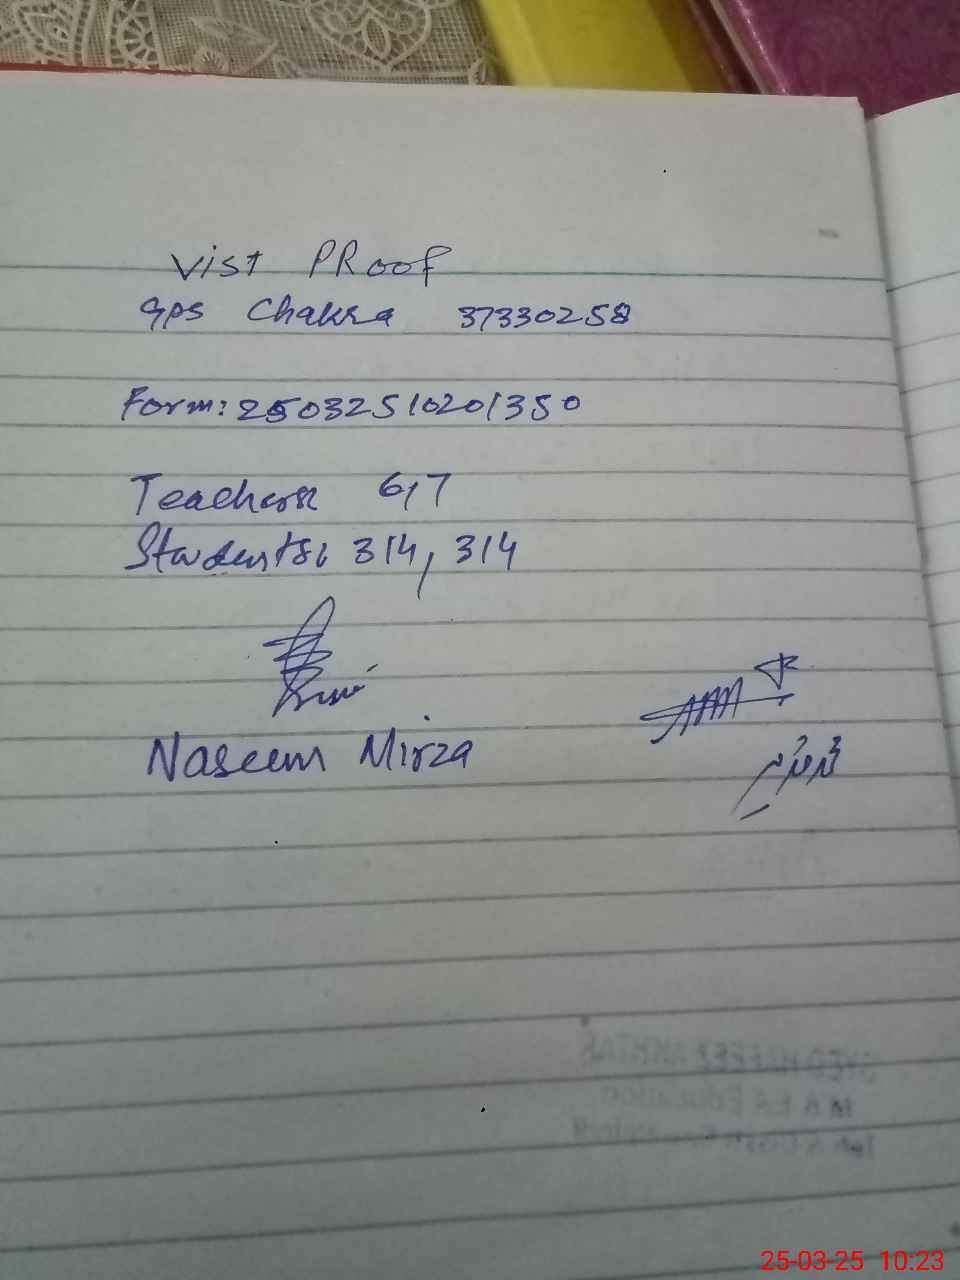 Vist PRoof
GPS Chakra 37330258
Form: 25032510201350
Teachers 6,7
Students: 314, 314
Naseem Mirza
25-03-25 10:23